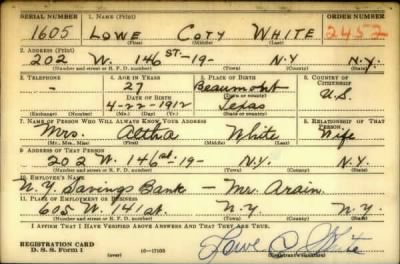 SERIAL NUMBER 1. NAME (Print) ORDER NUMBER
1605 LOWE COTY WHITE 2452
(First) (Middle) (Last)
2. ADDRESS (Print)
202 W. 146 ST.-19- N.Y N.Y.
(Number and street or R. F. D. number) (Town) (County) (State)
3. TELEPHONE 4. AGE IN YEARS 5. PLACE OF BIRTH 6. COUNTRY OF CITIZENSHIP
- 27 Beaumont
DATE OF BIRTH (Town or county) U.S.
4-22-1912 Texas
(Exchange) (Number) (Mo.) (Day) (Yr.) (State or country)
7. NAME OF PERSON WHO WILL ALWAYS KNOW YOUR ADDRESS 8. RELATIONSHIP OF THAT PERSON
Mrs. Althia White Wife
(Mr., Mrs., Miss) (First) (Middle) (Last)
9. ADDRESS OF THAT PERSON
202 W. 146 st.-19- N.Y. N.Y.
(Number and street or R. F. D. number) (Town) (County) (State)
10. EMPLOYER'S NAME
N.Y. Savings Bank - Mr. Arain.
11. PLACE OF EMPLOYMENT OR BUSINESS
605 W. 141 st. N.Y N.Y.
(Number and street or R. F. D. number) (Town) (County) (State)
I AFFIRM THAT I HAVE VERIFIED ABOVE ANSWERS AND THAT THEY ARE TRUE.
REGISTRATION CARD
D. S. S. Form 1 (over) Lowe C White
(Registrant's signature)